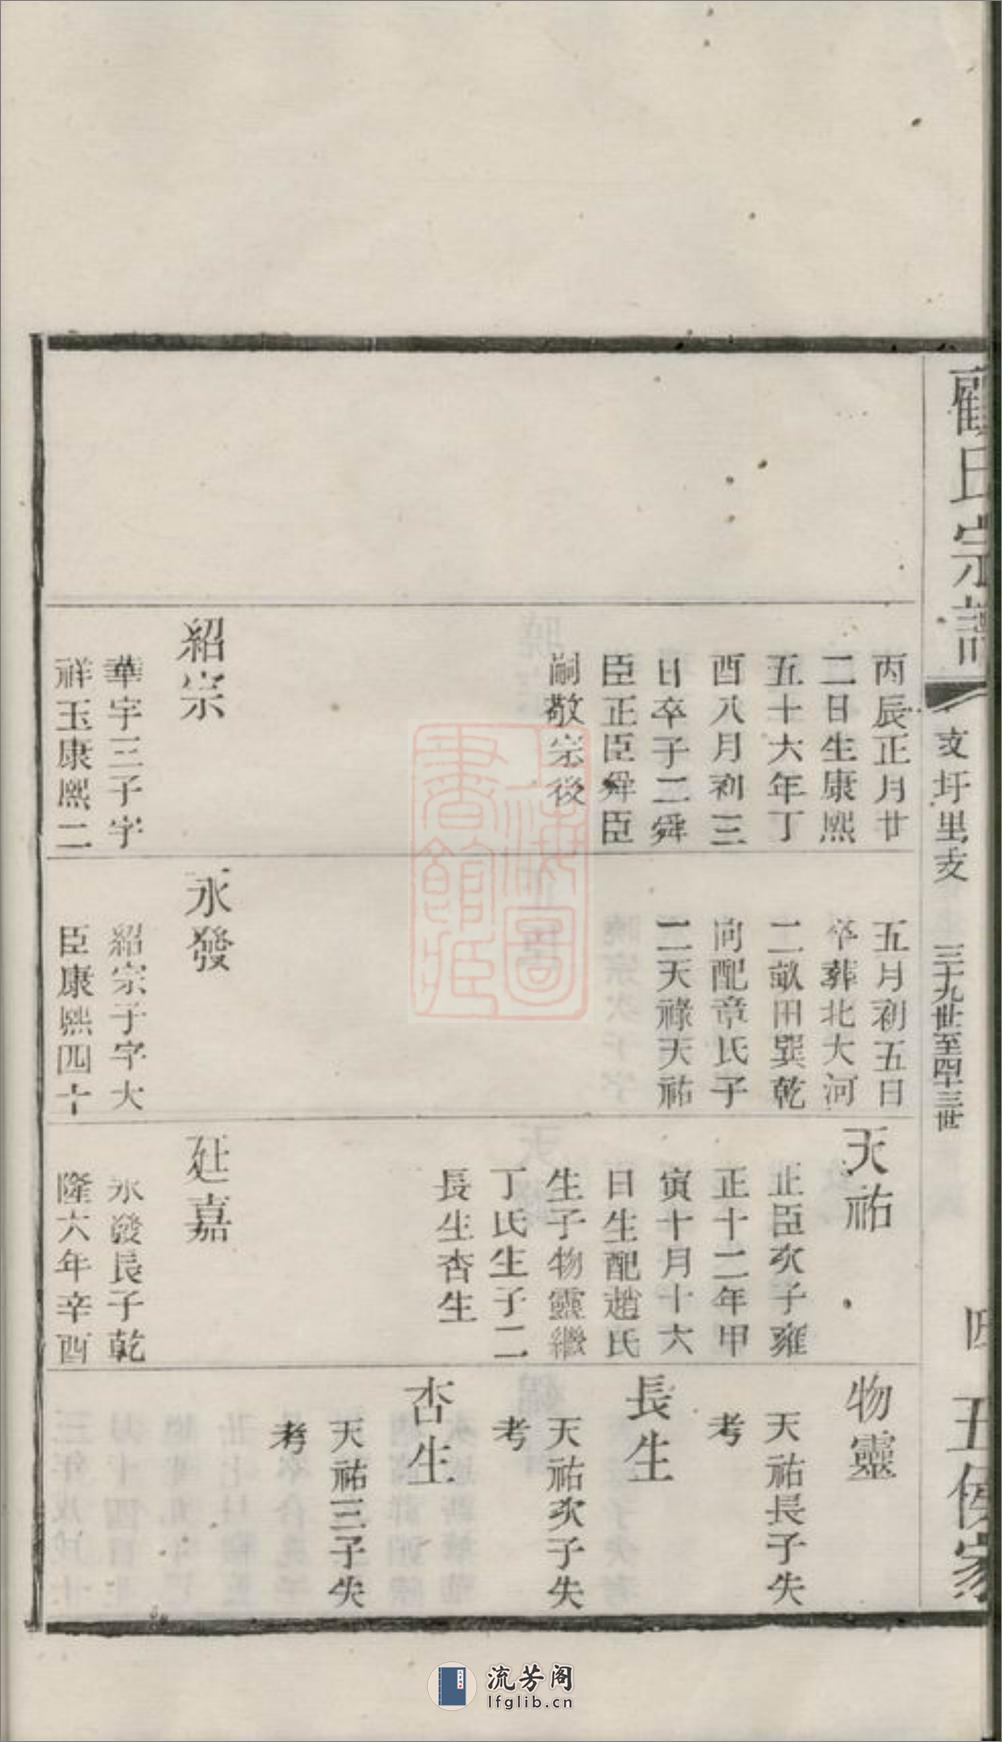 顧氏宗譜
支圩里支
三十九世至四十三世
四
五侯家
丙辰正月廿
二日生康熙
五十六年丁
酉八月初三
日卒子二舜
臣正臣舜臣
嗣敬宗後
紹宗
華宇三子字
祥玉康熙二
五月初五日
卒葬北大河
二畝田巽乾
向配章氏子
二天祿天祐
永發
紹宗子字大
臣康熙四十
天祐
正臣次子雍
正十二年甲
寅十月十六
日生配趙氏
生子物靈繼
丁氏生子二
長生杏生
廷嘉
永發長子乾
隆六年辛酉
物靈
天祐長子失
考
長生
天祐次子失
考
杏生
天祐三子失
考
上海圖
書館藏
流芳阁
lfglib.cn